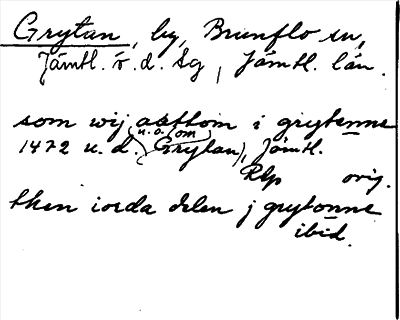 Grytan, by, Brunflo sn,
Jämtl. v. d. tg, Jämtl. län.
som wij aattom i grytenne
1472 u. d. (u. a. om Grytan), Jämtl.
RAp orig.
then iorda delen j grytonne
ibid.